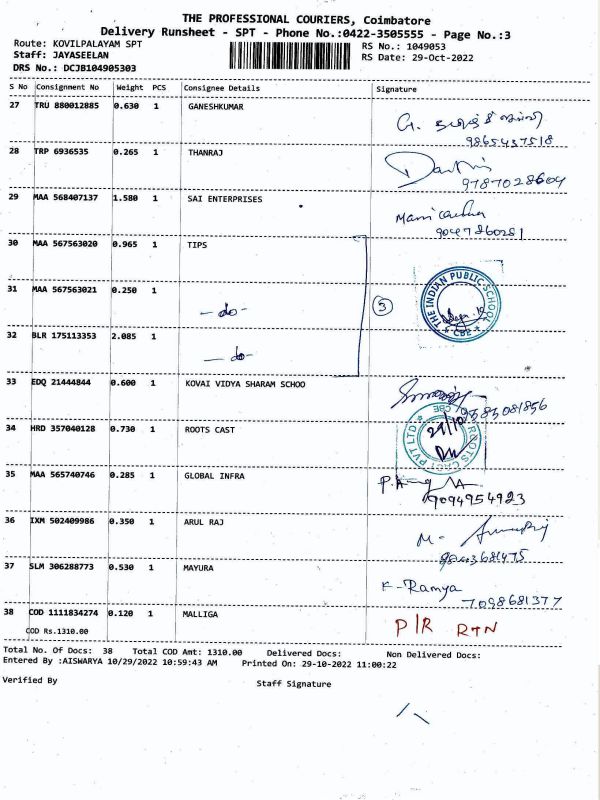 THE PROFESSIONAL COURIERS, Coimbatore
Delivery Runsheet - SPT - Phone No.:0422-3505555 - Page No.:3
Route: KOVILPALAYAM SPT RS No.: 1049053
Staff: JAYASEELAN RS Date: 29-Oct-2022
DRS No.: DCJB104905303
S No Consignment No Weight PCS Consignee Details Signature
27 TRU 880012885 0.630 1 GANESHKUMAR G.
9865437518
28 TRP 6936535 0.265 1 THANRAJ
9787028604
29 MAA 568407137 1.580 1 SAI ENTERPRISES
9047860281
30 MAA 567563020 0.965 1 TIPS
31 MAA 567563021 0.250 1
- do -
3
THE INDIAN PUBLIC SCHOOL
* CBE *
32 BLR 175113353 2.085 1
- do -
33 EDQ 21444844 0.600 1 KOVAI VIDYA SHARAM SCHOO
9585081856
34 HRD 357040128 0.730 1 ROOTS CAST
ROOTS CAST PVT LTD. * CBE
29/10
35 MAA 565740746 0.285 1 GLOBAL INFRA
9094954923
36 IXM 502409986 0.350 1 ARUL RAJ M-
9843681475
37 SLM 306288773 0.530 1 MAYURA K-Ramya
7098681377
38 COD 1111834274 0.120 1 MALLIGA P/R RTN
COD Rs.1310.00
Total No. Of Docs: 38 Total COD Amt: 1310.00 Delivered Docs: Non Delivered Docs:
Entered By :AISWARYA 10/29/2022 10:59:43 AM Printed On: 29-10-2022 11:00:22
Verified By Staff Signature